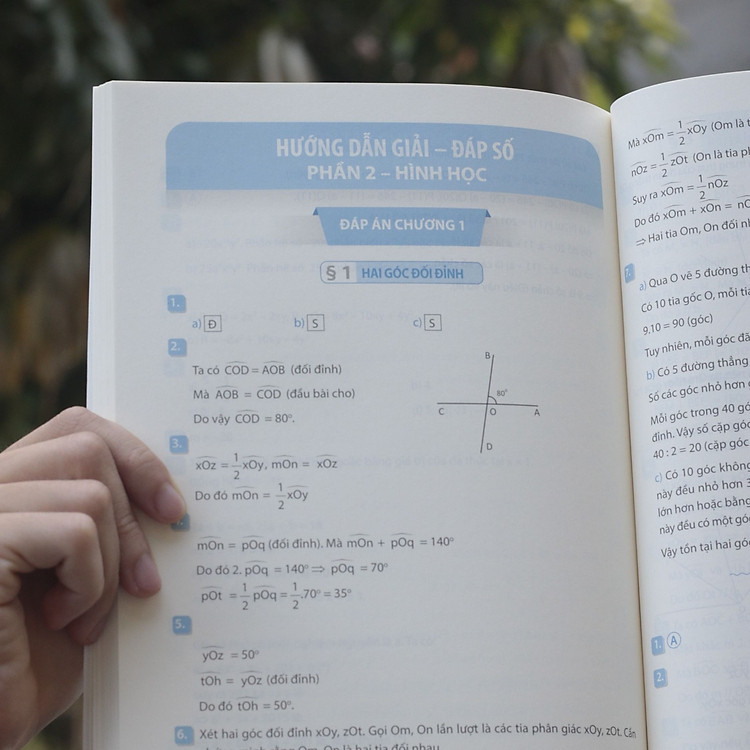 HƯỚNG DẪN GIẢI – ĐÁP SỐ
PHẦN 2 – HÌNH HỌC
ĐÁP ÁN CHƯƠNG 1
§ 1 HAI GÓC ĐỐI ĐỈNH
1.
a) Đ b) S c) S
2.
Ta có COD = AOB (đối đỉnh)
Mà AOB = COD (đầu bài cho)
Do vậy COD = 80°.
B
80°
C O A
D
3.
xOz = 1/2 xOy, mOn = xOz
Do đó mOn = 1/2 xOy
mOn = pOq (đối đỉnh). Mà mOn + pOq = 140°
Do đó 2. pOq = 140° ⟹ pOq = 70°
pOt = 1/2 pOq = 1/2.70° = 35°
5.
yOz = 50°
tOh = yOz (đối đỉnh)
Do đó tOh = 50°.
6. Xét hai góc đối đỉnh xOy, zOt. Gọi Om, On lần lượt là các tia phân giác xOy, zOt. Cần
Om, On là hai tia đối nhau
Mà xOm = 1/2 xOy (Om là t
nOz = 1/2 zOt (On là tia p
Suy ra xOm = 1/2 nOz
Do đó xOm + xOn = nO
⇒ Hai tia Om, On đối n
7.
a) Qua O vẽ 5 đường th
Có 10 tia gốc O, mỗi tia
9.10 = 90 (góc)
Tuy nhiên, mỗi góc đã
b) Có 5 đường thẳng
Số các góc nhỏ hơn
Mỗi góc trong 40 gó
đỉnh. Vậy số cặp góc
40 : 2 = 20 (cặp góc
c) Có 10 góc không
này đều nhỏ hơn 3
lớn hơn hoặc bằng
này đều có một gó
Vậy tồn tại hai góc
1. A
2.